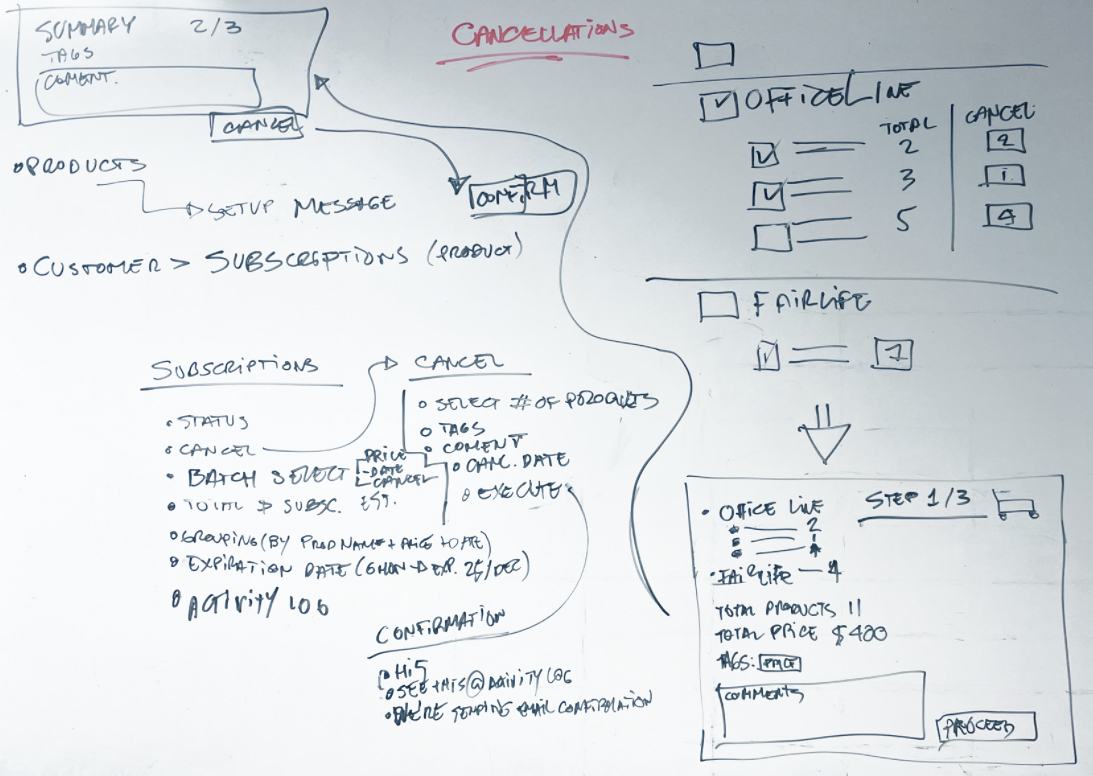 CANCELLATIONS
SUMMARY 2/3
TAGS
COMENT.
CANCEL
CONFIRM
PRODUCTS
SETUP MESSAGE
CUSTOMER > SUBSCRIPTIONS (PRODUCT)
OFFICELINE
TOTAL
CANCEL
2
2
3
1
5
4
FAIRLIFE
SUBSCRIPTIONS
STATUS
CANCEL
BATCH SELECT
PRICE
DATE
CANCEL
TOTAL
SUBSC. EST.
GROUPING (BY PROD NAME + PRICE + DATE)
EXPIRATION DATE
ACTIVITY LOG
CANCEL
SELECT # OF PRODUCTS
TAGS
COMENT
CANC. DATE
EXECUTE
CONFIRMATION
HI5
SEE THIS @ ACTIVITY LOG
WE'RE SENDING EMAIL CONFIRMATION
STEP 1/3
OFFICE LINE
2
1
FAIRLIFE
TOTAL PRODUCTS 11
TOTAL PRICE $400
TAGS: PRICE
COMMENTS
PROCEED